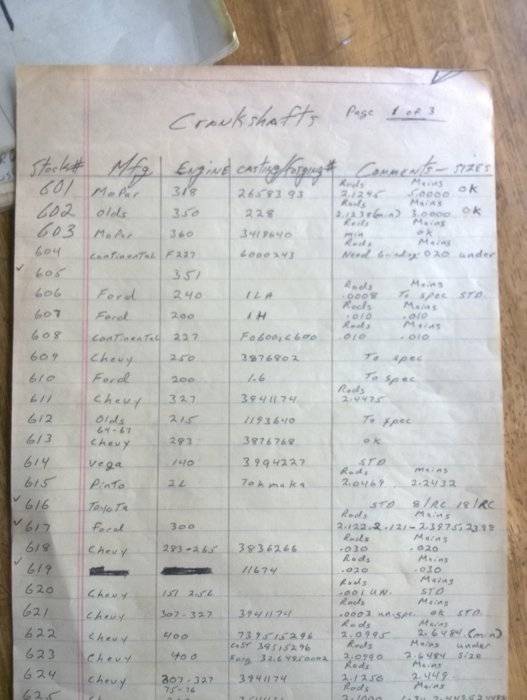 Crankshafts Page 1 of 3
Stock# Mfg. Engine casting/forging# Comments - sizes
Rods Mains
601 MoPar 318 2658393 2.1245 5.0000 OK
Rods Mains
602 Olds 350 228 2.1238(min) 3.0000 OK
Rods Mains
603 MoPar 360 3418640 min OK
Rods Mains
604 Continental F227 6000243 Need Grinding 020 under
605 351
Rods Mains
606 Ford 240 1LA .0008 To spec STD.
Rods Mains
607 Ford 200 1H .010 .010
Rods Mains
608 Continental 227 .010 .010
609 Chevy 250 3876802 To spec
610 Ford 200 1.6 To spec
Rods
611 Chevy 327 3941174 2.4475
612 Olds 215 1193640 To spec
64-67
613 Chevy 283 3876768 OK
614 Vega 140 3994227 STD
Rods mains
615 Pinto 2L 2.0469 2.2432
616 Toyota STD 8/RC 18/RC
Rods Mains
617 Ford 300 2.122-2.121-2.3975,2398
Rods Mains
618 Chevy 283-265 3836266 .030 .020
Rods Mains
619 11674 .020 .030
Rods Mains
620 Chevy 151 2.5L .001 UN. STD
Rods Mains
621 Chevy 307-327 3941174 .0003 un.spc. ok STD.
Rods Mains
622 Chevy 400 2.0995 2.6484 (min)
cast 39515296 Rods Mains under
623 Chevy 400 Forg 2.0990 2.6484 size
Rods Mains
624 Chevy 307-327 3941174 2.1250 2.449
75-76 Rods Mains
625